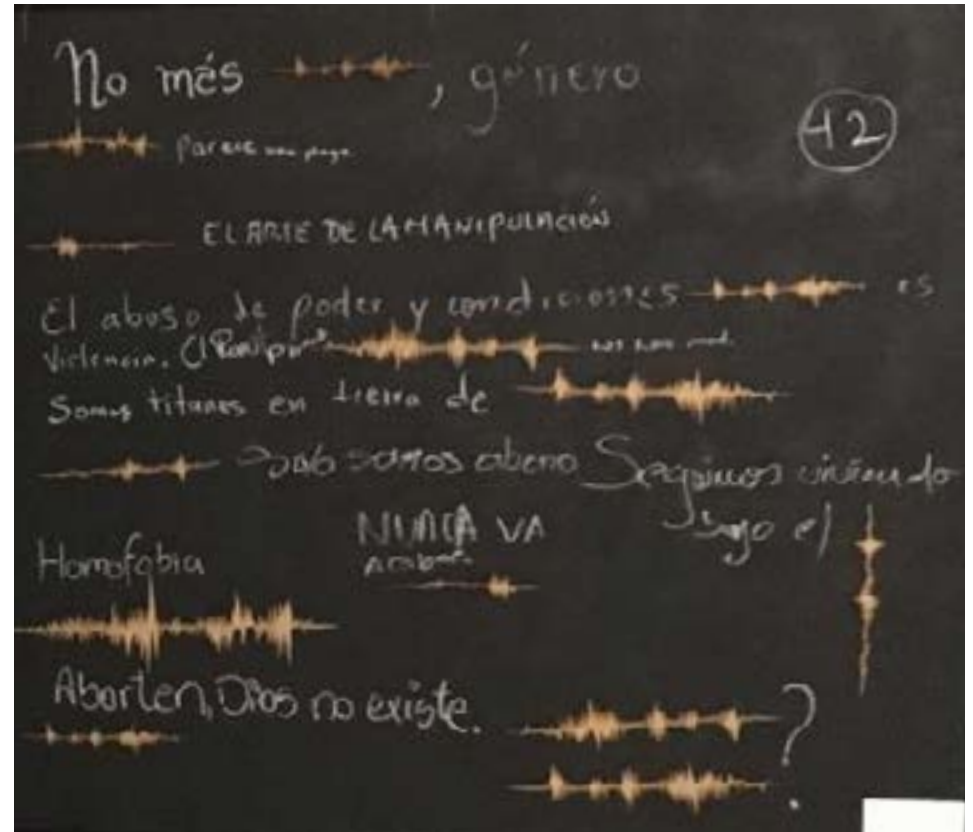 No més , género
42
Parece una plaga
EL ARTE DE LA MANIPULACIÓN
El abuso de poder y condiciones es
Violencia. El
Somos titanes en tierra de
somos Seguimos viviendo
bajo el
NUNCA VA
Homofobia
Aborten, Dios no existe.
?